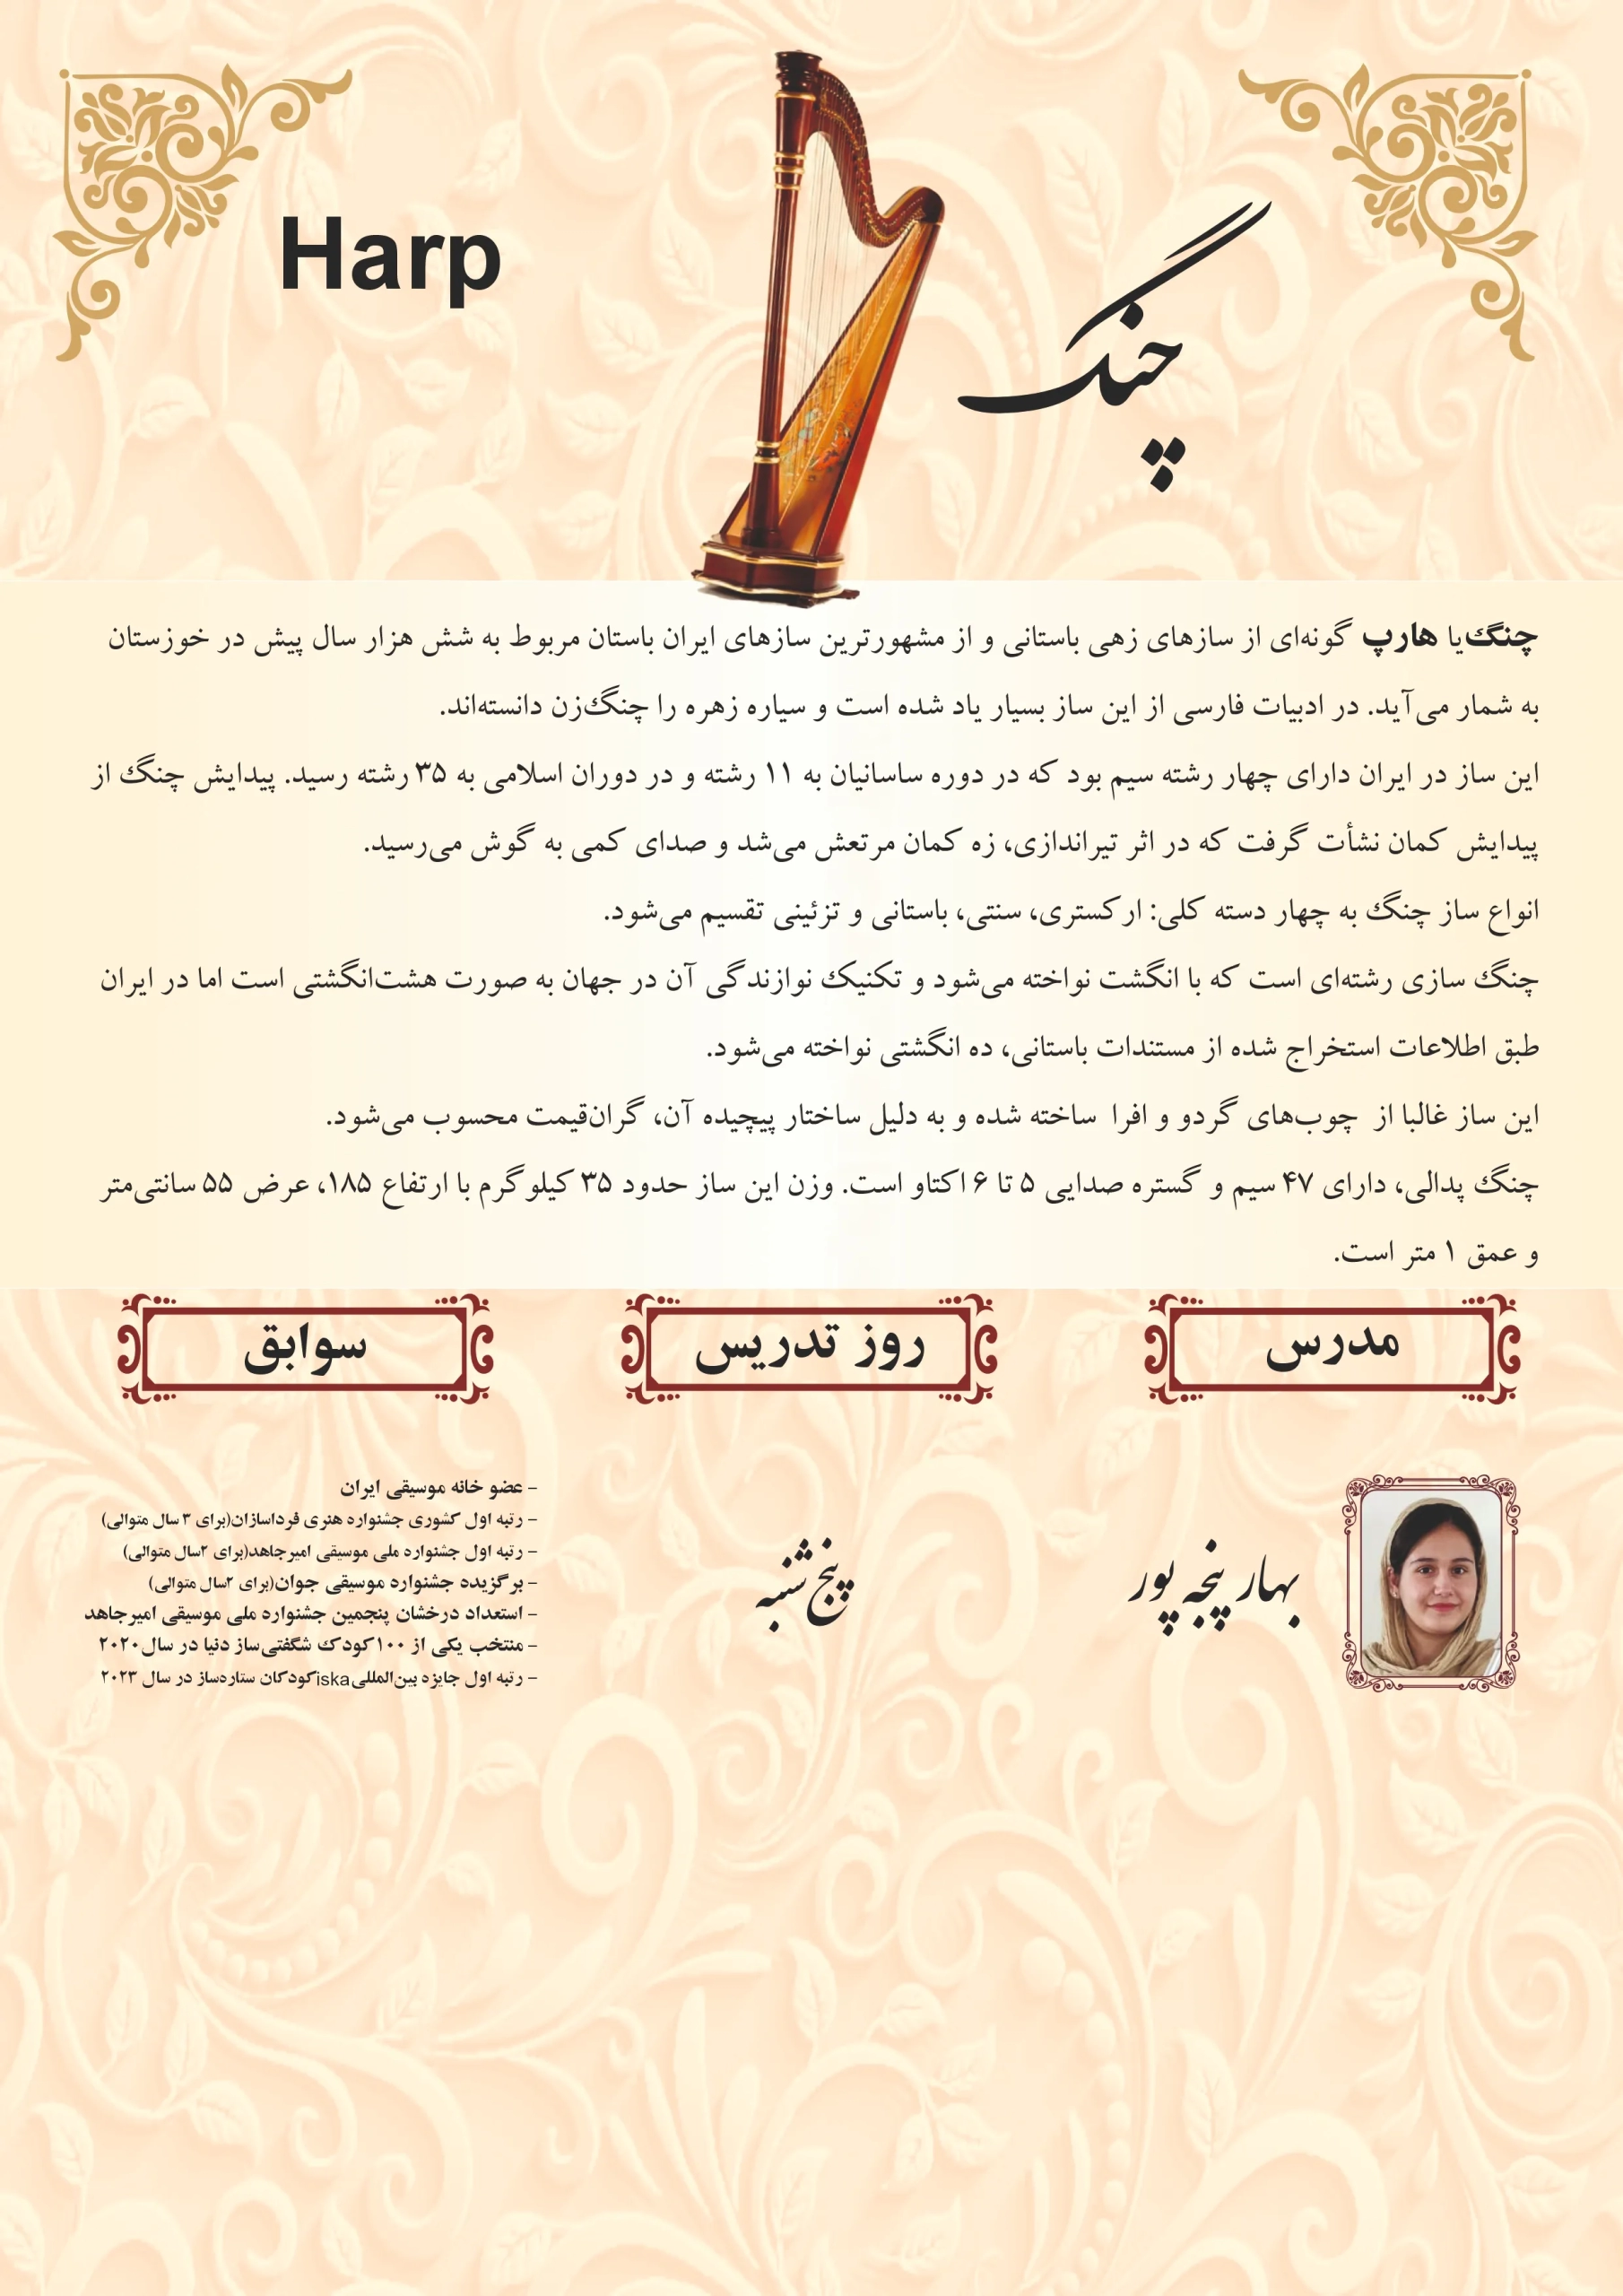 Harp
چنگ
چنگ یا هارپ گونه‌ای از سازهای زهی باستانی و از مشهورترین سازهای ایران باستان مربوط به شش هزار سال پیش در خوزستان
به شمار می‌آید. در ادبیات فارسی از این ساز بسیار یاد شده است و سیاره زهره را چنگ‌زن دانسته‌اند.
این ساز در ایران دارای چهار رشته سیم بود که در دوره ساسانیان به ۱۱ رشته و در دوران اسلامی به ۳۵ رشته رسید. پیدایش چنگ از
پیدایش کمان نشأت گرفت که در اثر تیراندازی، زه کمان مرتعش می‌شد و صدای کمی به گوش می‌رسید.
انواع ساز چنگ به چهار دسته کلی: ارکستری، سنتی، باستانی و تزئینی تقسیم می‌شود.
چنگ سازی رشته‌ای است که با انگشت نواخته می‌شود و تکنیک نوازندگی آن در جهان به صورت هشت‌انگشتی است اما در ایران
طبق اطلاعات استخراج شده از مستندات باستانی، ده انگشتی نواخته می‌شود.
این ساز غالبا از چوب‌های گردو و افرا ساخته شده و به دلیل ساختار پیچیده آن، گران‌قیمت محسوب می‌شود.
چنگ پدالی، دارای ۴۷ سیم و گستره صدایی ۵ تا ۶ اکتاو است. وزن این ساز حدود ۳۵ کیلوگرم با ارتفاع ۱۸۵، عرض ۵۵ سانتی‌متر
و عمق ۱ متر است.
مدرس
روز تدریس
سوابق
بهار پنجه پور
پنج شنبه
- عضو خانه موسیقی ایران
- رتبه اول کشوری جشنواره هنری فرداسازان(برای ۳ سال متوالی)
- رتبه اول جشنواره ملی موسیقی امیرجاهد(برای ۲سال متوالی)
- برگزیده جشنواره موسیقی جوان(برای ۲سال متوالی)
- استعداد درخشان پنجمین جشنواره ملی موسیقی امیرجاهد
- منتخب یکی از ۱۰۰کودک شگفتی‌ساز دنیا در سال۲۰۲۰
- رتبه اول جایزه بین‌المللیiskaکودکان ستاره‌ساز در سال ۲۰۲۳